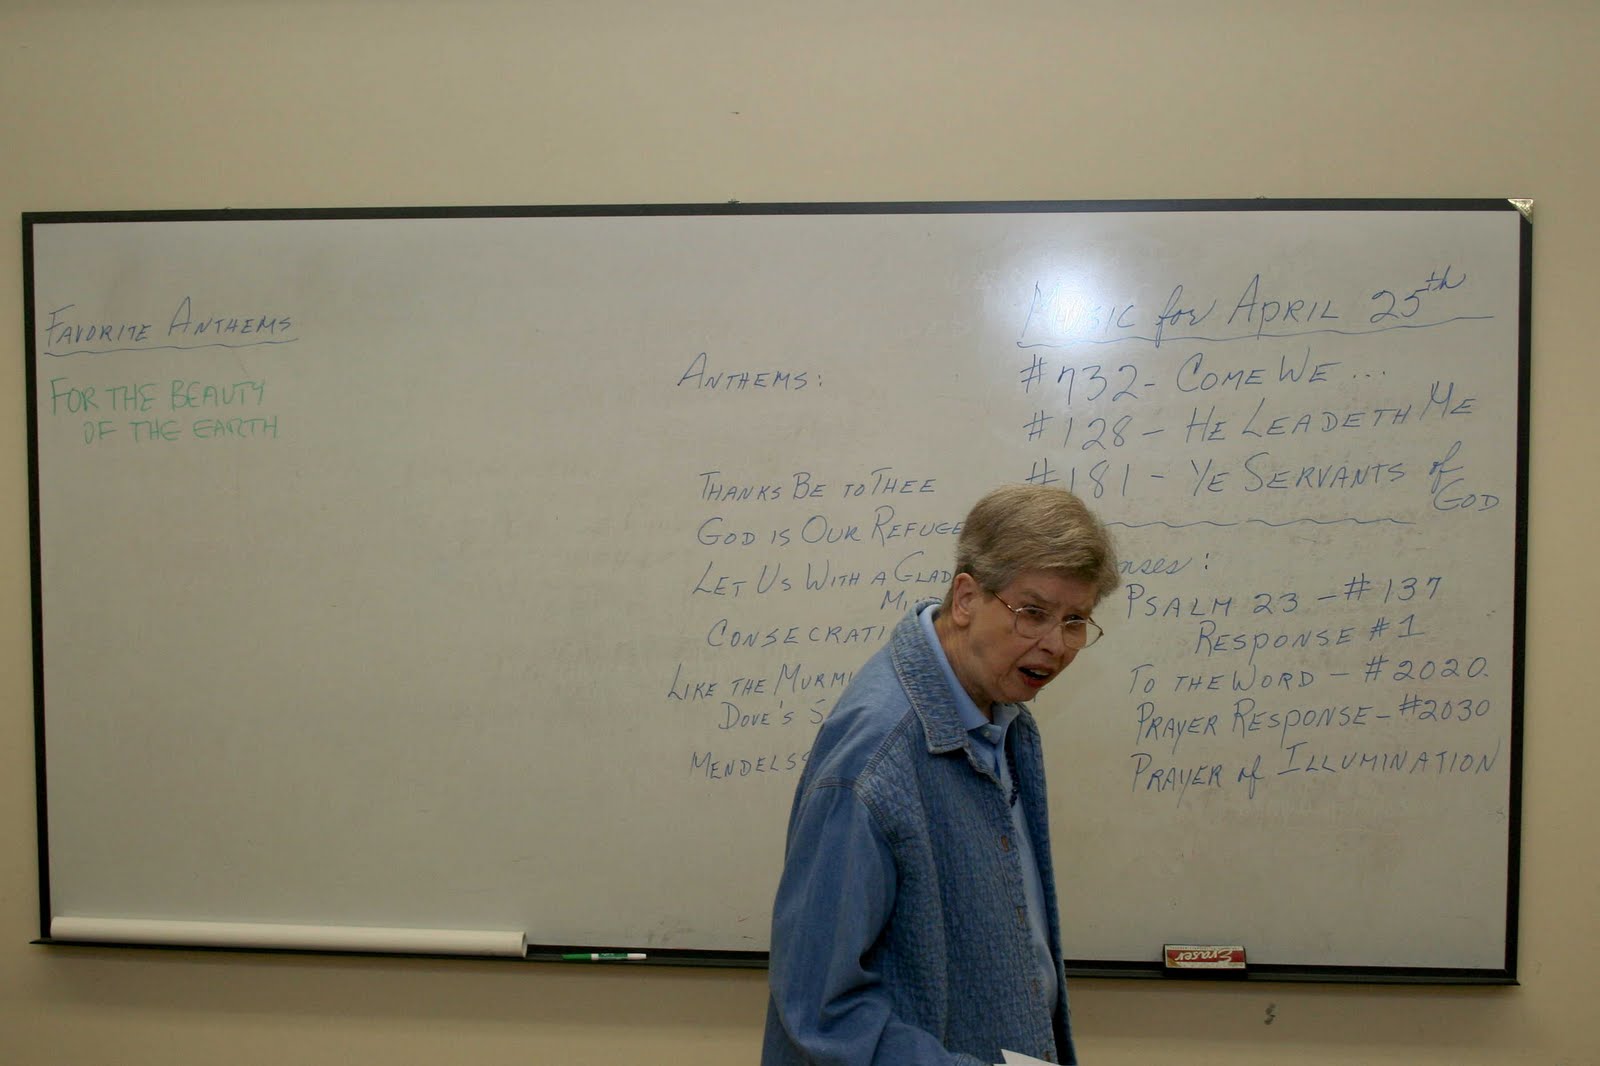 FAVORITE ANTHEMS
FOR THE BEAUTY
OF THE EARTH
ANTHEMS:
THANKS BE TO THEE
GOD IS OUR REFUGE
LET US WITH A GLAD
LIKE THE
DOVE'S
MUSIC for APRIL 25th
#732 - COME WE ...
#128 - HE LEADETH ME
#181 - YE SERVANTS of
GOD
PSALM 23 - #137
RESPONSE #1
TO THE WORD - #2020.
PRAYER RESPONSE - #2030
PRAYER of ILLUMINATION
Eraser